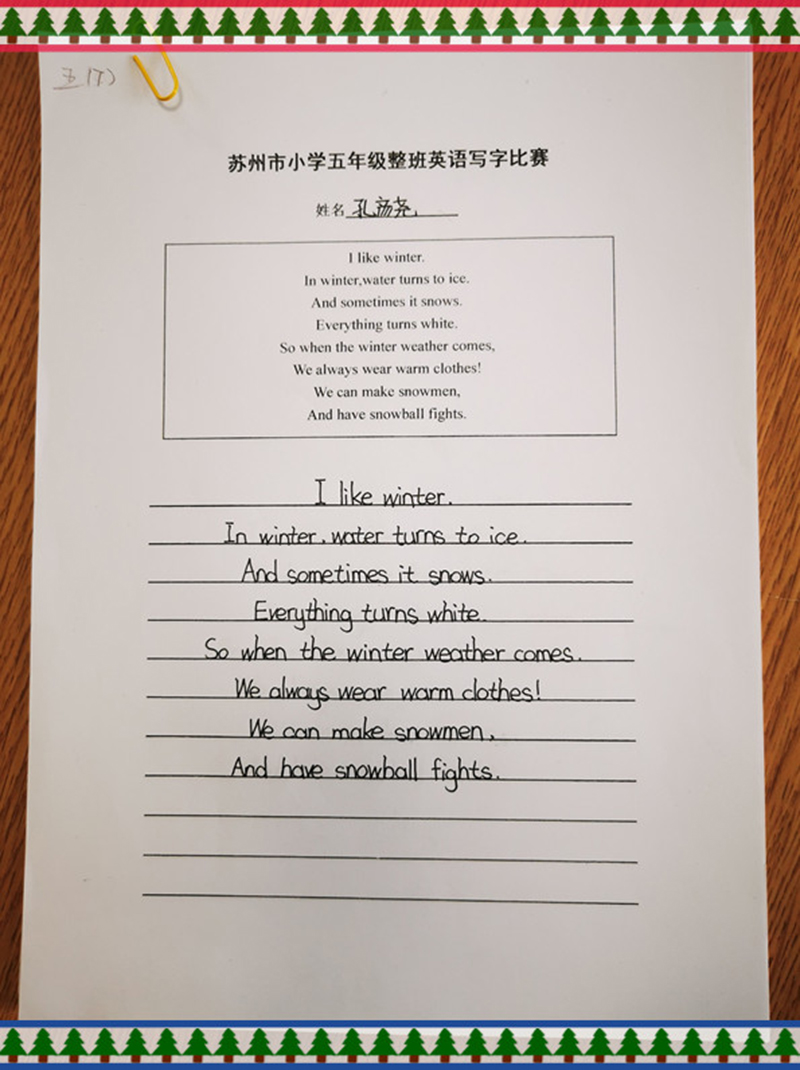 五(7)
苏州市小学五年级整班英语写字比赛
姓名 孔扬尧
I like winter.
In winter,water turns to ice.
And sometimes it snows.
Everything turns white.
So when the winter weather comes,
We always wear warm clothes!
We can make snowmen,
And have snowball fights.
I like winter.
In winter,water turns to ice.
And sometimes it snows.
Everything turns white.
So when the winter weather comes.
We always wear warm clothes!
We can make snowmen,
And have snowball fights.